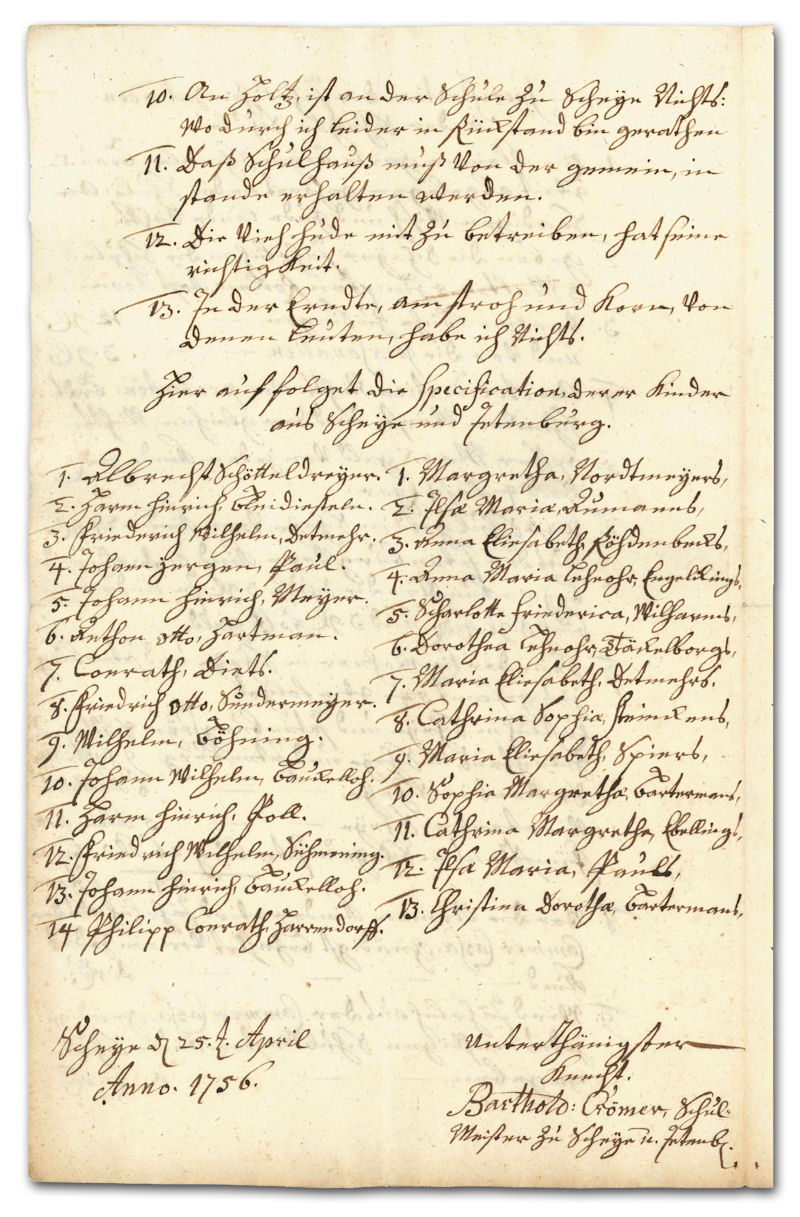 10. An Holtz, ist an der Schule zu Scheye Nichts:
wo durch ich leider in Rückstand bin gerathen
11. Daß Schulhauß muß Von der gemein, in
stande erhalten werden.
12. Die Vieh hude mit zu betreiben, hat seine
richtigkeit.
13. In der Erndte, am stroh und Korn, Von
denen leuten, habe ich Nichts.
Hier auf folget die Specification, derer Kinder
aus Scheye und Jetenburg.
1. Albrecht Schötteldreyer.
2. Harm Hinrich
3. Friederich Wilhelm, Detmehr.
4. Johann Jergen, Paul.
5. Johann Hinrich, Meyer.
6. Anthon Otto, Hartman.
7. Conrath, Diets.
8. Friedrich Otto, Sundermeyer.
9. Wilhelm, Böhning.
10. Johann Wilhelm, Bauckelloh.
11. Harm Hinrich, Poll.
12. Friedrich Wilhelm,
13. Johann Hinrich, Bauckelloh.
14 Philipp Conrath, Harrendorff.
1. Margretha, Nordtmeyers,
2. Ilsa Maria, Aumanns,
3. Anna Eliesabeth,
4. Anna Maria Lehnohr, Engelkings,
5. Scharlotte Friederica, Wilharms,
6. Dorothea Lehnohr,
7. Maria Eliesabeth, Detmehrs.
8. Cathrina Sophia, Steinckens,
9. Maria Eliesabeth, Spiers,
10. Sophia Margretha, Bartermans,
11. Cathrina Margretha, Ebellings,
12. Ilsa Maria, Pauls,
13. Christina Dorotha, Bartermans,
Scheye d 25. t. April
Anno. 1756.
Unterthänigster
Knecht.
Barthold: Crömer, Schul-
Meister zu Scheye u. Jetenb.